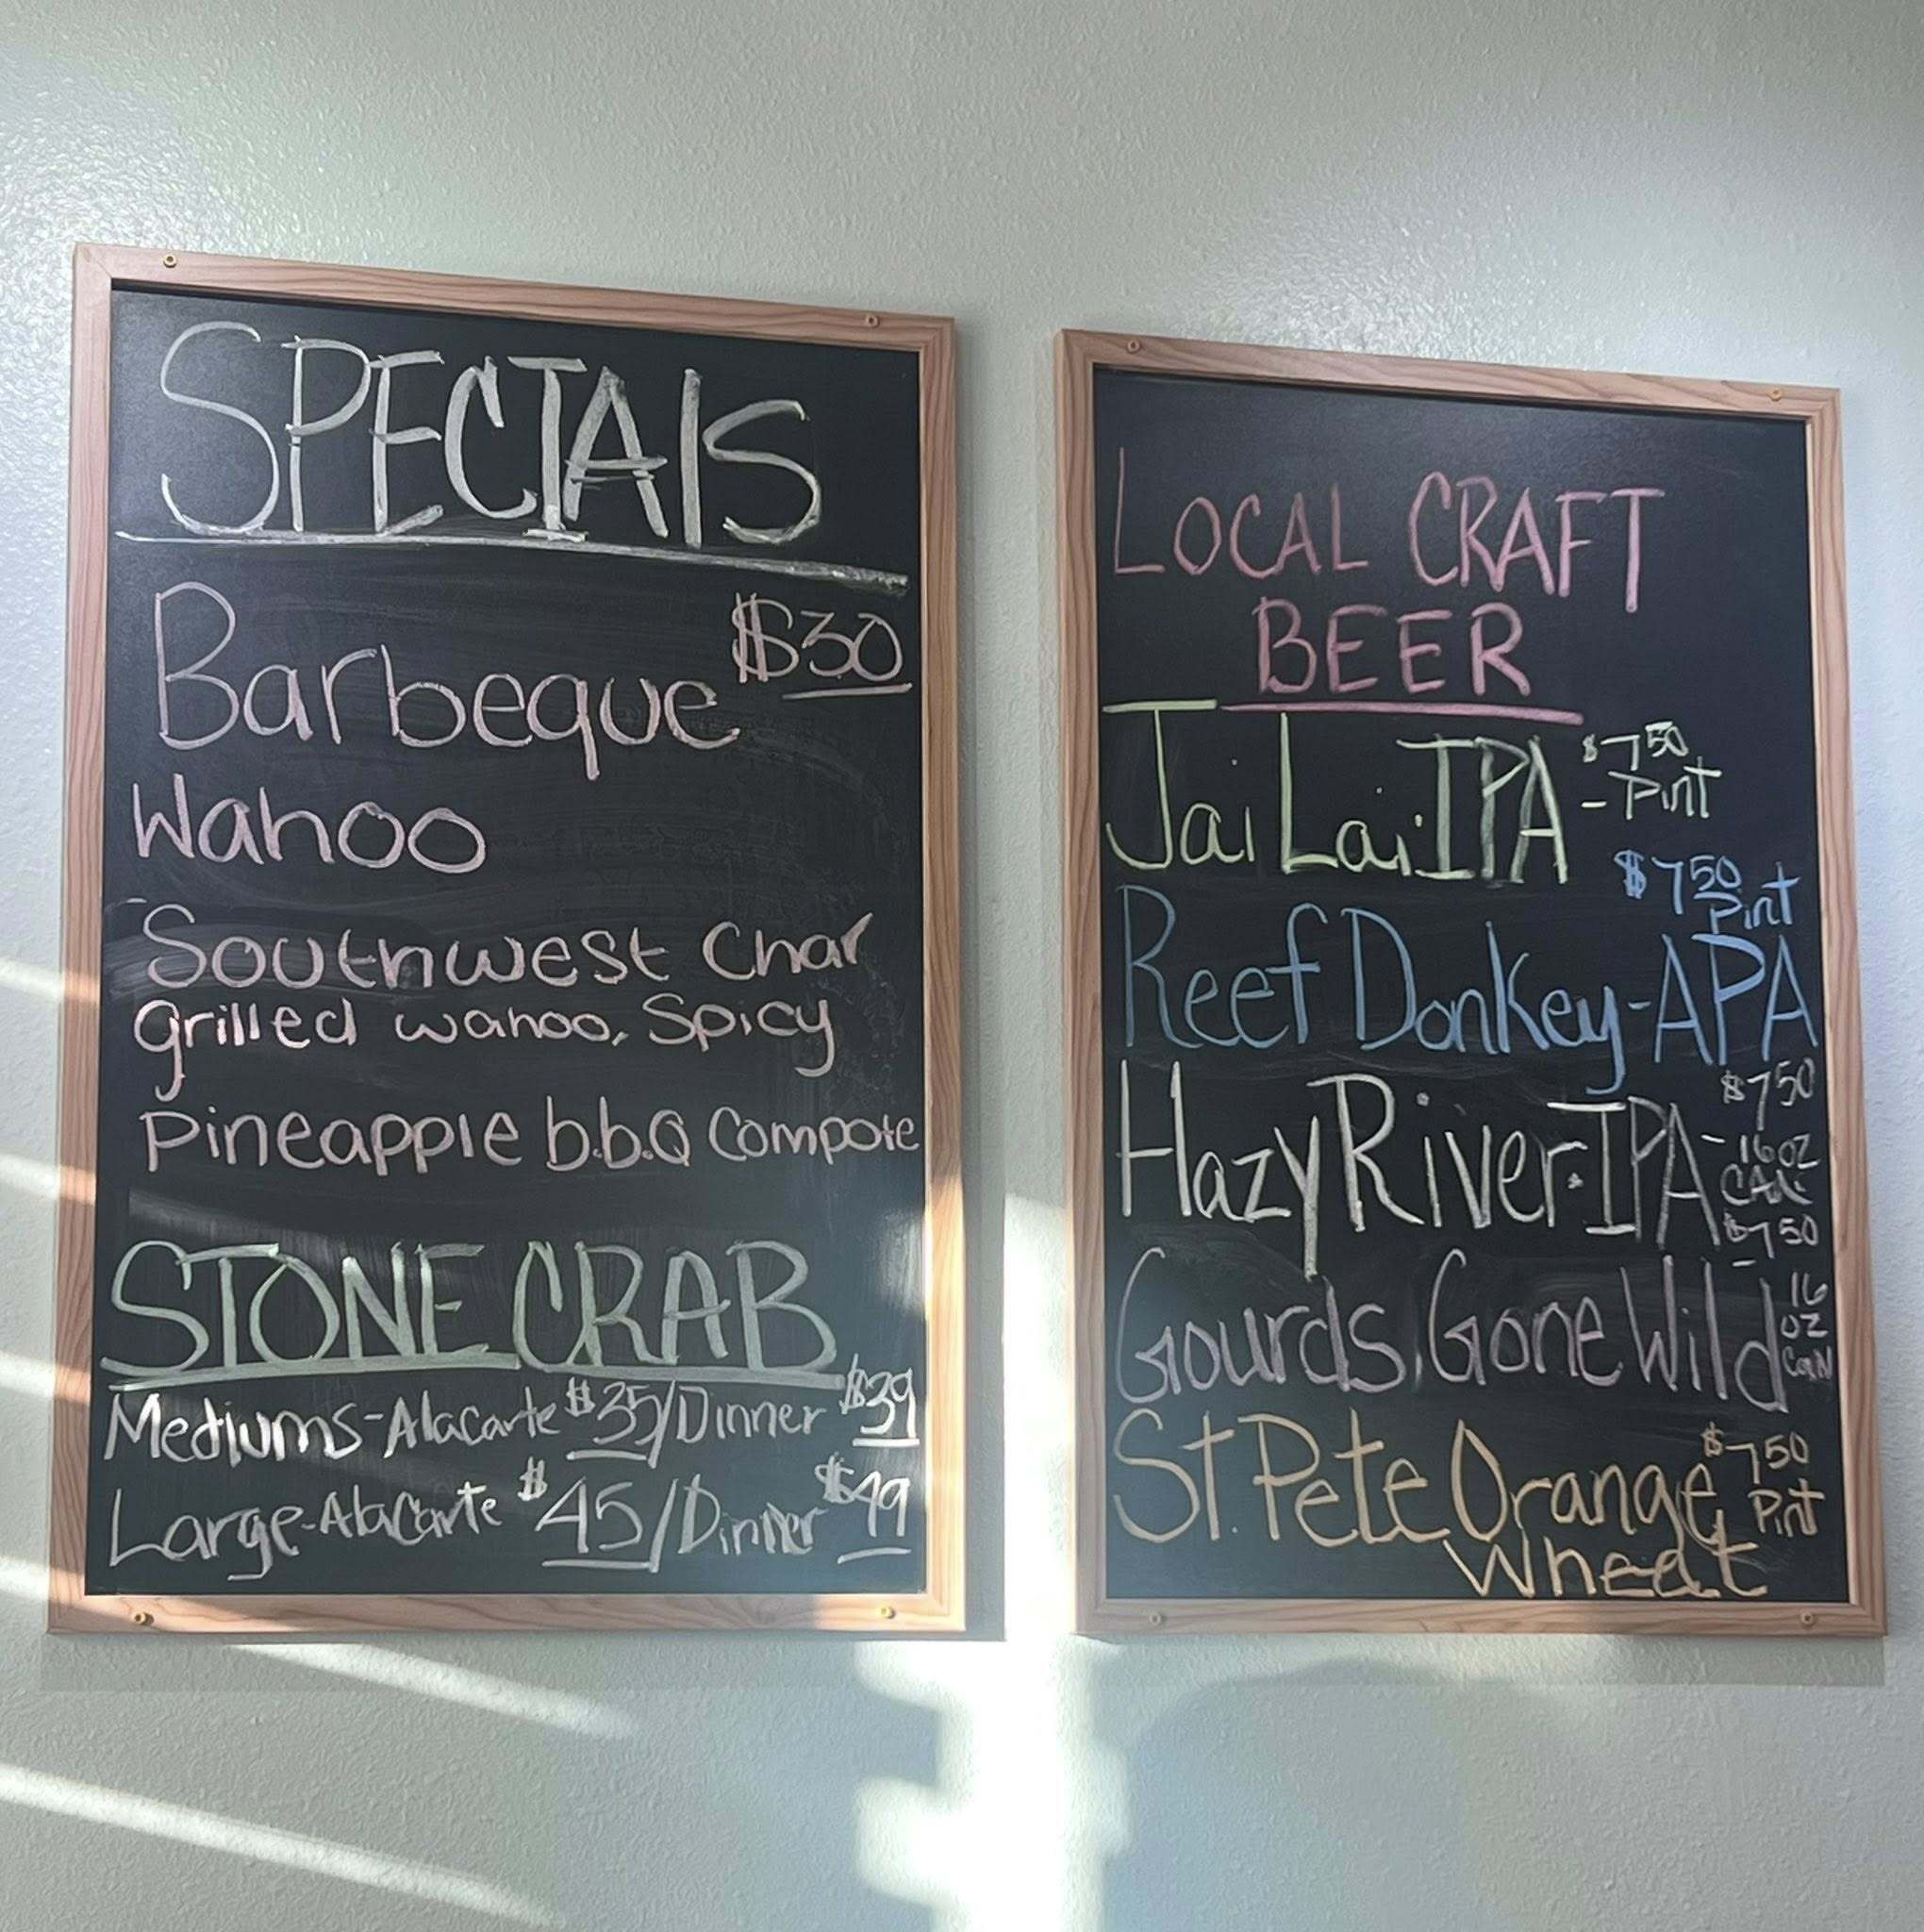 SPECIAlS
Barbeque $30
Wahoo
Southwest Char
grilled wahoo, Spicy
Pineapple b.b.Q Compote
STONE CRAB
Mediums-Alacarte $35/Dinner $39
Large-AlaCarte $45/Dinner $49
LOCAL CRAFT
BEER
Jai Lai IPA - $7.50 Pint
Reef Donkey-APA $7.50 Pint
Hazy River IPA - $7.50 16oz CAN
Gourds Gone Wild $7.50 - 16 oz CaN
St. Pete Orange $7.50 Pint
Wheat